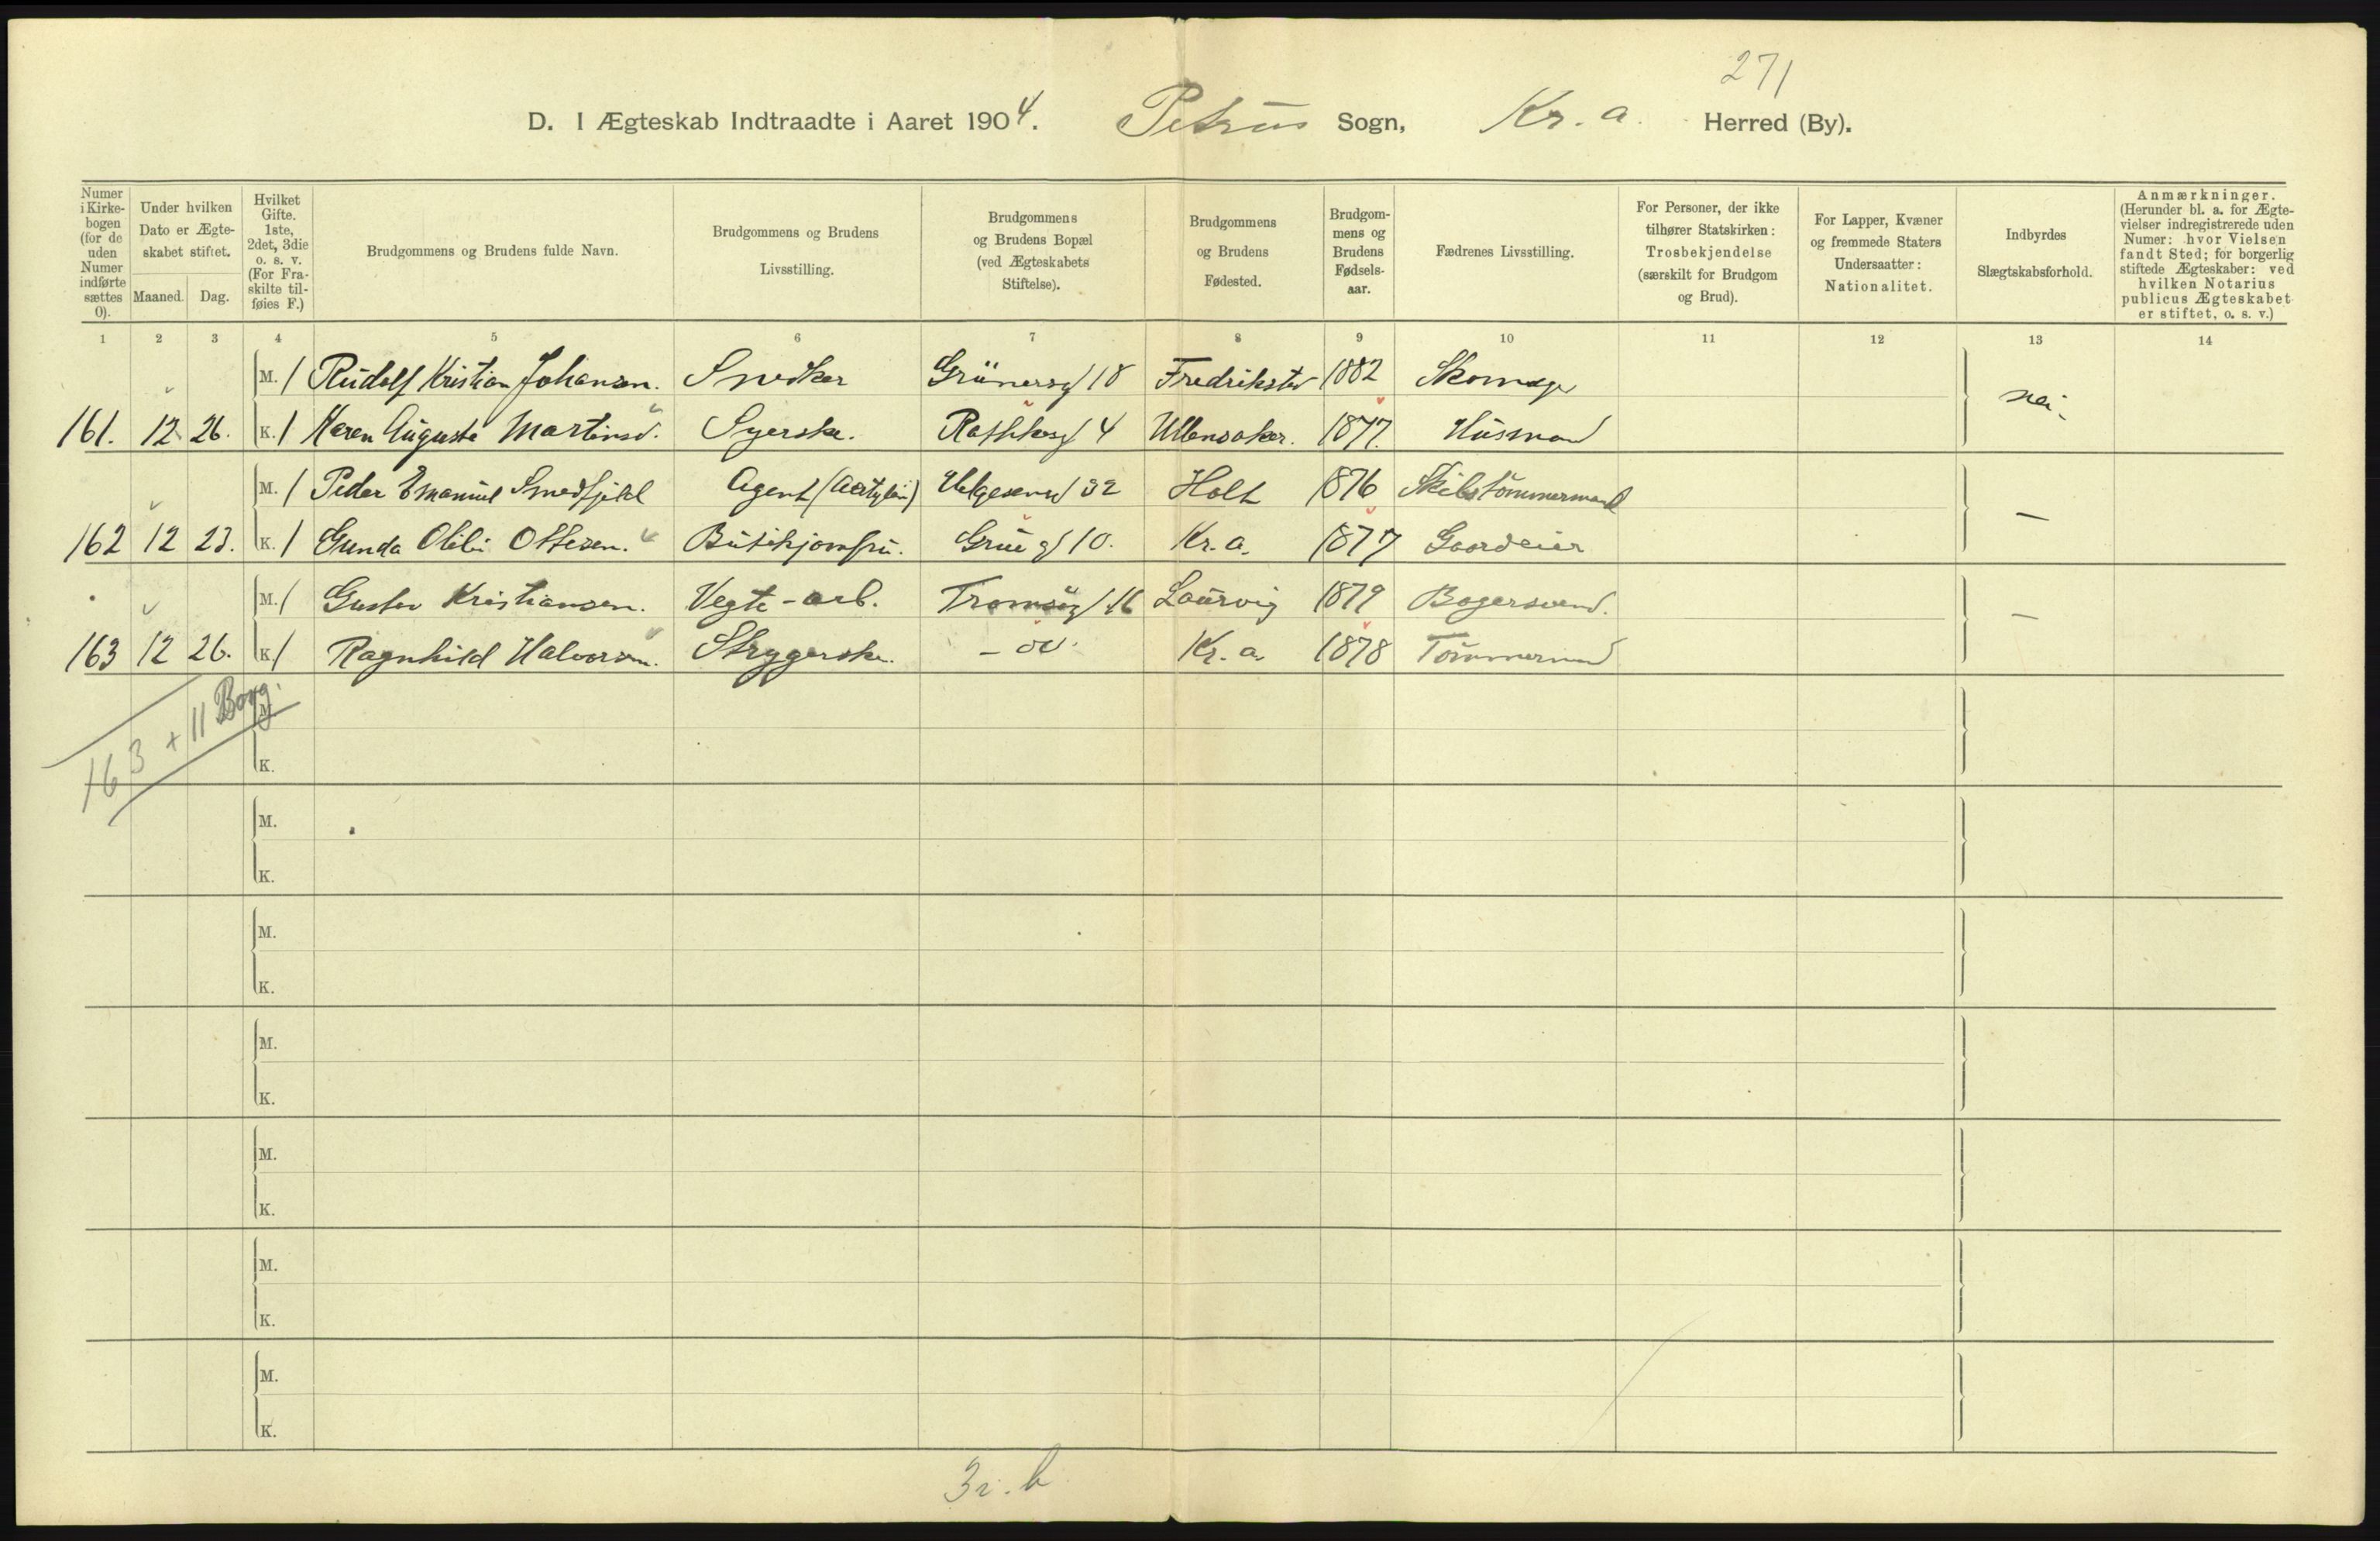 271
D. I Ægteskab Indtraadte i Aaret 1904. Petrus Sogn, Kr. a. Herred (By).
Numer i Kirkebogen (for de uden Numer indførte sættes 0).
Under hvilken Dato er Ægteskabet stiftet.
Maaned. Dag.
Hvilket Gifte. 1ste, 2det, 3die o. s. v. (For Fraskilte tilføies F.)
Brudgommens og Brudens fulde Navn.
Brudgommens og Brudens Livsstilling.
Brudgommens og Brudens Bopæl (ved Ægteskabets Stiftelse).
Brudgommens og Brudens Fødested.
Brudgommens og Brudens Fødselsaar.
Fædrenes Livsstilling.
For Personer, der ikke tilhører Statskirken: Trosbekjendelse (særskilt for Brudgom og Brud).
For Lapper, Kvæner og fremmede Staters Undersaatter: Nationalitet.
Indbyrdes Slægtskabsforhold.
Anmærkninger. (Herunder bl. a. for Ægtevielser indregistrerede uden Numer: hvor Vielsen fandt Sted; for borgerlig stiftede Ægteskaber: ved hvilken Notarius publicus Ægteskabet er stiftet, o. s. v.)
1 2 3 4 5 6 7 8 9 10 11 12 13 14
M. 1 Rudolf Kristian Johansen. Snedker Grünersg 18 Fredriksta 1882 Skomager
nei.
161. 12 26. K. 1 Karen Augusta Martinsd. Syerske. Rathkesg 4 Ullensaker. 1877. Husmand
M. 1 Peder Emanuel Smedfjeld Agent 32 Holt 1876 Skibstømmermand
162 12 23. K. 1 Gunda Otteson. Butikjomfru. Grue g 10. Kr. a. 1877 Gaardeier
—
M. 1 Gustav Kristiansen. Vegte-arb. Tromsøg 16 Laurvig 1879 Bagersvend.
—
163 12 26. K. 1 Ragnhild Halvorsen. Strygerske. - do. Kr. a. 1878 Tømmermand
163 + 11 Borg.
M.
K.
M.
K.
M.
K.
M.
K.
M.
K.
M.
K.
M.
K.